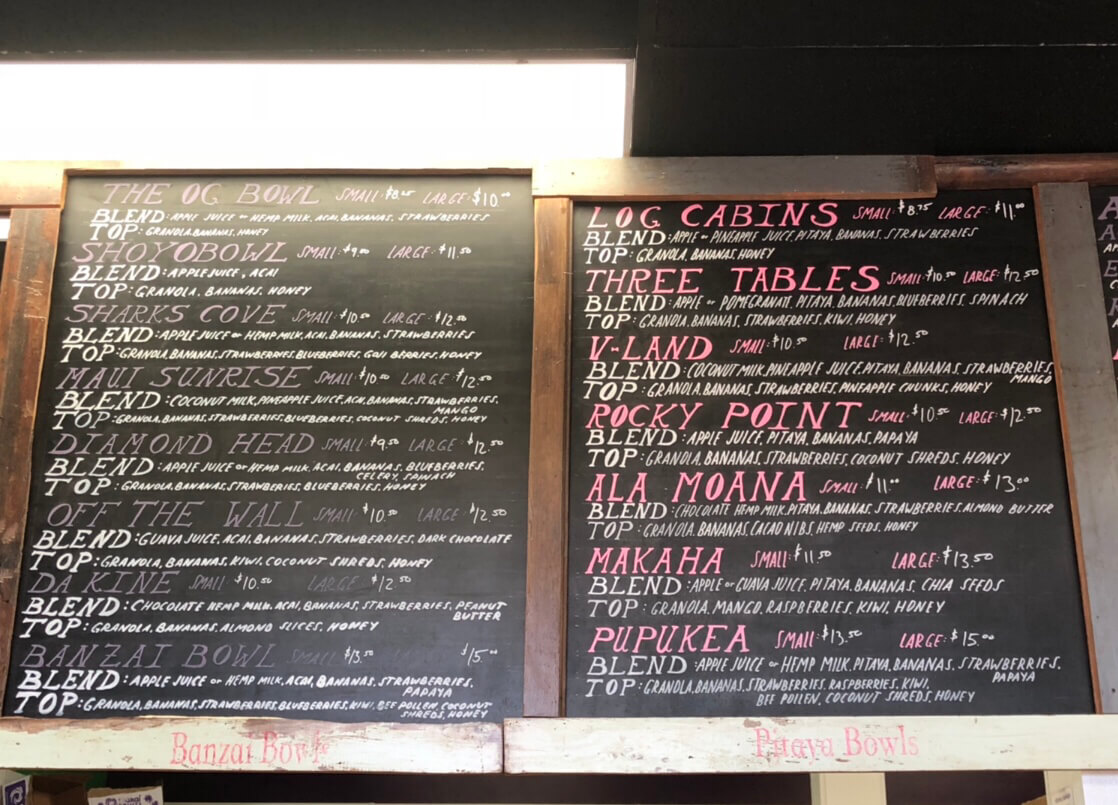 THE OG BOWL SMALL: $8.25 LARGE: $10.00
BLEND: APPLE JUICE or HEMP MILK, ACAI, BANANAS, STRAWBERRIES
TOP: GRANOLA, BANANAS, HONEY
SHOYOBOWL SMALL: $9.00 LARGE: $11.50
BLEND: APPLE JUICE, ACAI
TOP: GRANOLA, BANANAS, HONEY
SHARKS COVE SMALL: $10.00 LARGE: $12.00
BLEND: APPLE JUICE or HEMP MILK, ACAI, BANANAS, STRAWBERRIES
TOP: GRANOLA, BANANAS, STRAWBERRIES, BLUEBERRIES, GOJI BERRIES, HONEY
MAUI SUNRISE SMALL: $10.00 LARGE: $12.50
BLEND: COCONUT MILK, PINEAPPLE JUICE, ACAI, BANANAS, STRAWBERRIES,
MANGO
TOP: GRANOLA, BANANAS, STRAWBERRIES, BLUEBERRIES, COCONUT SHREDS, HONEY
DIAMOND HEAD SMALL: $9.50 LARGE: $12.50
BLEND: APPLE JUICE or HEMP MILK, ACAI, BANANAS, BLUEBERRIES,
CELERY, SPINACH
TOP: GRANOLA, BANANAS, STRAWBERIES, BLUEBERRIES, HONEY
OFF THE WALL SMALL: $10.50 LARGE: $12.50
BLEND: GUAVA JUICE, ACAI, BANANAS, STRAWBERRIES, DARK CHOCOLATE
TOP: GRANOLA, BANANAS, KIWI, COCONUT SHREDS, HONEY
DA KINE SMALL: $10.50 LARGE: $12.50
BLEND: CHOCOLATE HEMP MILK, ACAI, BANANAS, STRAWBERRIES, PEANUT
BUTTER
TOP: GRANOLA, BANANAS, ALMOND SLICES, HONEY
BANZAI BOWL SMALL: $13.50 $15.00
BLEND: APPLE JUICE or HEMP MILK, ACAI, BANANAS, STRAWBERRIES,
PAPAYA
TOP: GRANOLA, BANANAS, STRAWBERRIES, BLUEBERRIES, KIWI, BEE POLLEN, COCONUT
SHREDS, HONEY
Banzai Bowls
LOG CABINS SMALL: $8.75 LARGE: $11.00
BLEND: APPLE or PINEAPPLE JUICE, PITAYA, BANANAS, STRAWBERRIES
TOP: GRANOLA, BANANAS, HONEY
THREE TABLES SMALL: $10.50 LARGE: $12.50
BLEND: APPLE or POMEGRANATE, PITAYA, BANANAS, BLUEBERRIES, SPINACH
TOP: GRANOLA, BANANAS, STRAWBERRIES, KIWI, HONEY
V-LAND SMALL: $10.50 LARGE: $12.50
BLEND: COCONUT MILK, PINEAPPLE JUICE, PITAYA, BANANAS, STRAWBERRIES,
MANGO
TOP: GRANOLA, BANANAS, STRAWBERRIES, PINEAPPLE CHUNKS, HONEY
ROCKY POINT SMALL: $10.50 LARGE: $12.50
BLEND: APPLE JUICE, PITAYA, BANANAS, PAPAYA
TOP: GRANOLA, BANANAS, STRAWBERRIES, COCONUT SHREDS, HONEY
ALA MOANA SMALL: $11.00 LARGE: $13.00
BLEND: CHOCOLATE HEMP MILK, PITAYA, BANANAS, STRAWBERRIES, ALMOND BUTTER
TOP: GRANOLA, BANANAS, CACAO NIBS, HEMP SEEDS, HONEY
MAKAHA SMALL: $11.50 LARGE: $13.50
BLEND: APPLE or GUAVA JUICE, PITAYA, BANANAS, CHIA SEEDS
TOP: GRANOLA, MANGO, RASPBERRIES, KIWI, HONEY
PUPUKEA SMALL: $13.50 LARGE: $15.00
BLEND: APPLE JUICE or HEMP MILK, PITAYA, BANANAS, STRAWBERRIES,
PAPAYA
TOP: GRANOLA, BANANAS, STRAWBERRIES, RASPBERRIES, KIWI,
BEE POLLEN, COCONUT SHREDS, HONEY
Pitaya Bowls